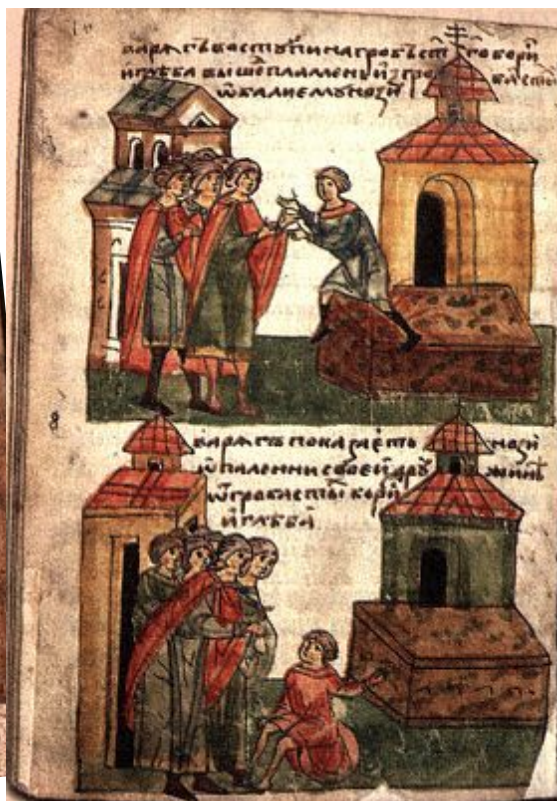 варѧгъ востꙋпи на гробъ ст҃го бори
и глѣба вышеⷣ пламень и з гро ба ст҃ы
ѡпали емꙋ нози
варѧгъ показаеть нози
ѡпаленни своеи дрꙋ жинѣ
ѿ гроба ст҃ы бори
и глѣба